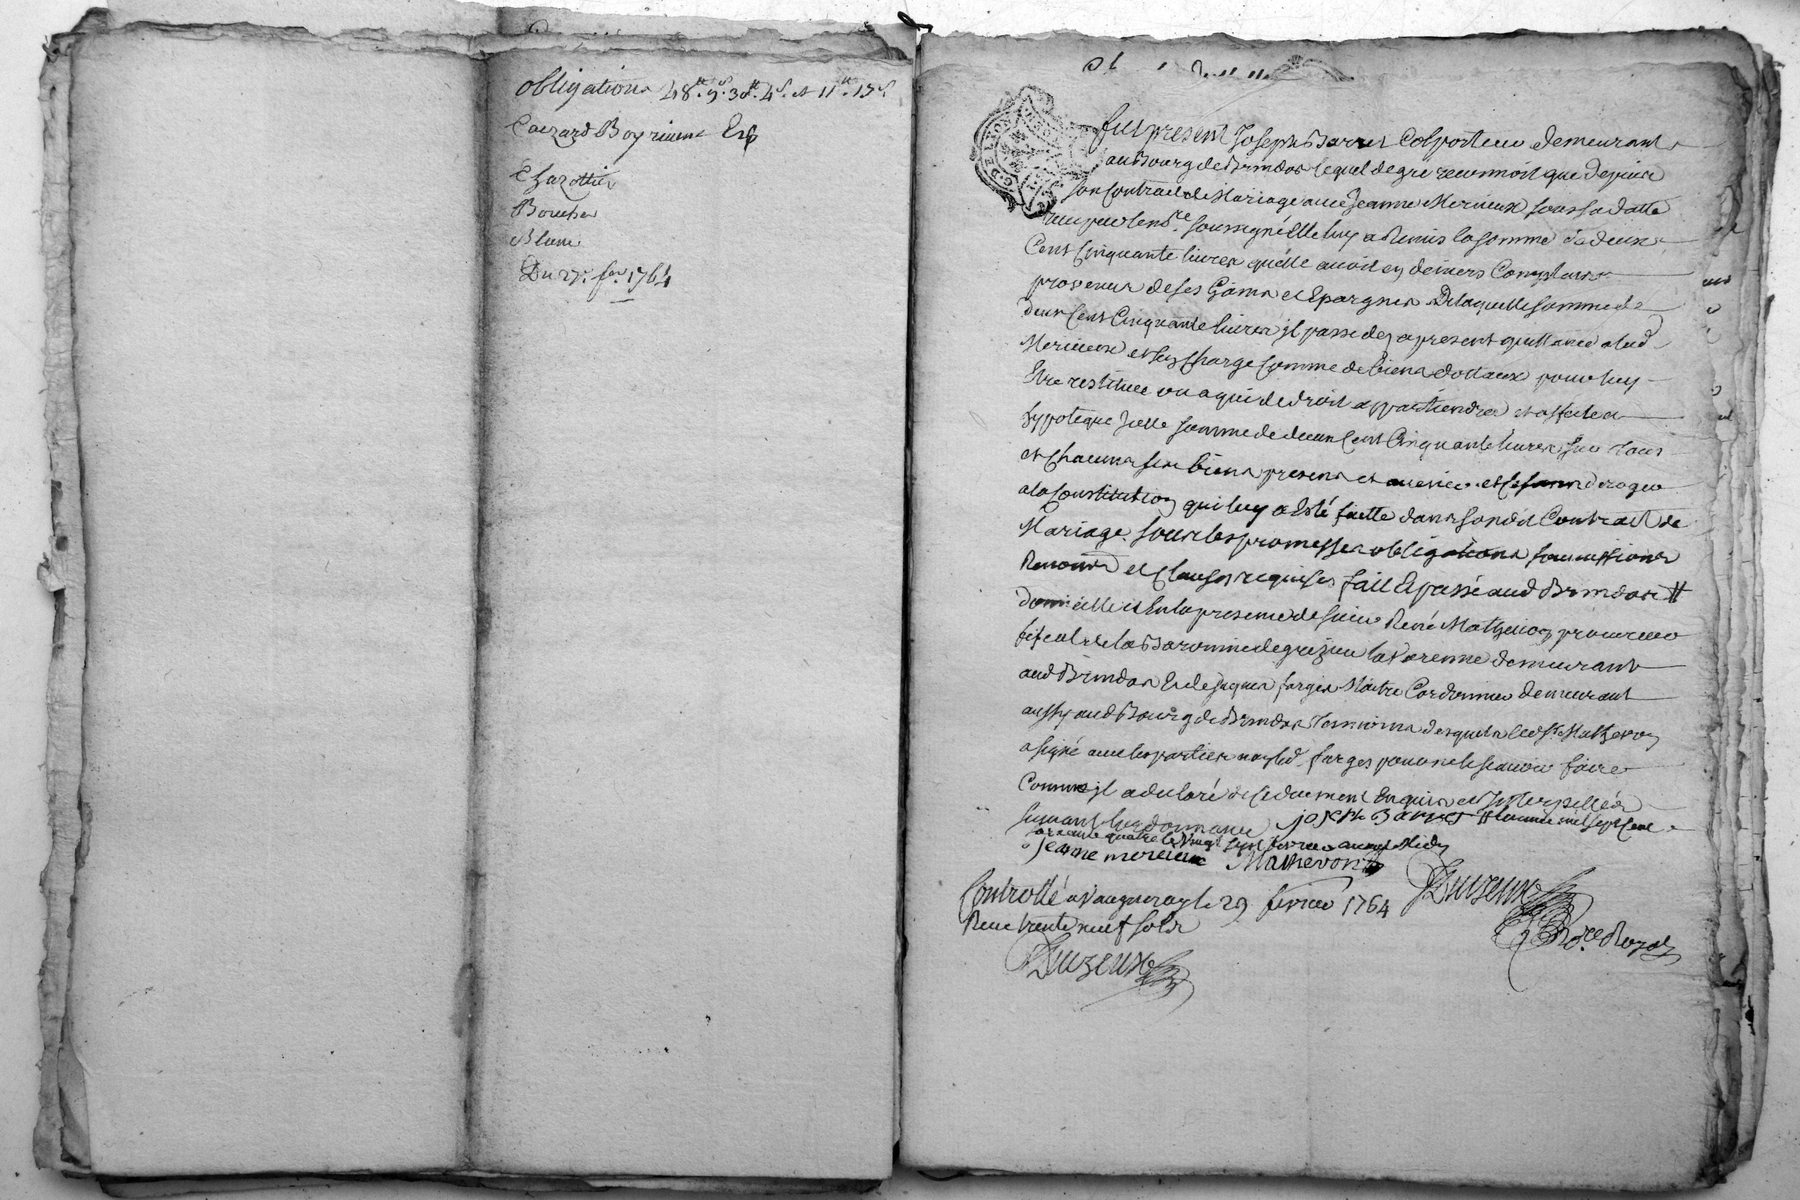 obligations 48.tt 9.s 30.tt 4.s et 11.tt 15.s
Cat
Chazottier
Boucher
Blanc
Du 27.e fer. 1764
G. DE LYON
fut present Joseph Barret Colporteur demeurant
au Bourg de Brindas lequel de gre reconnoit que depuis
son Contract de Mariage avec Jeanne Merieux sous sa datte
recu par le no.re soussigné elle luy a Remis la somme de deux
Cent Cinquante livres quelle avoit en deniers Comptans
provenus de ses Gains et Epargnes De laquelle somme de
deux Cent Cinquante livres il passe dez apresent quittance a lad.
Merieux et sen Charge Comme de biens dottaux pour luy
Etre restituee ou a qui de droit appartiendra et affecte et
hypoteque Icelle somme de deux Cent Cinquante livres sur tous
et Chacuns ses biens presens et avenir et Ce sans deroger
a la Constitution qui luy a Eté faitte dans sond. Contract de
Mariage. sous les promesses obligations soumissions
Renonc.ns et Clauses requises fait Et passé aud Brindas #
domicille et En la presence de sieur René Mathevon procureur
fiscal de la Baronnie de grezieu la Varenne demeurant
aud Brindas Et de farges Maitre Cordonnier demeurant
aussy aud Bourg de Brindas Temoins desquels led. Sr. Mathevon
a signé avec les parties non led. farges pour ne le scavoir faire
Comme il a declaré de Ce duement Enquis et Interpellé
suivant lordonnance joseph Barret # l'année mil sept Cent
soixante quatre le vingt sept fevrier avant Midy
Jeanne merieux Mathevon
Controllé a Vaugneray le 29 fevrier 1764
Recu trente neuf sols
No.re Royal